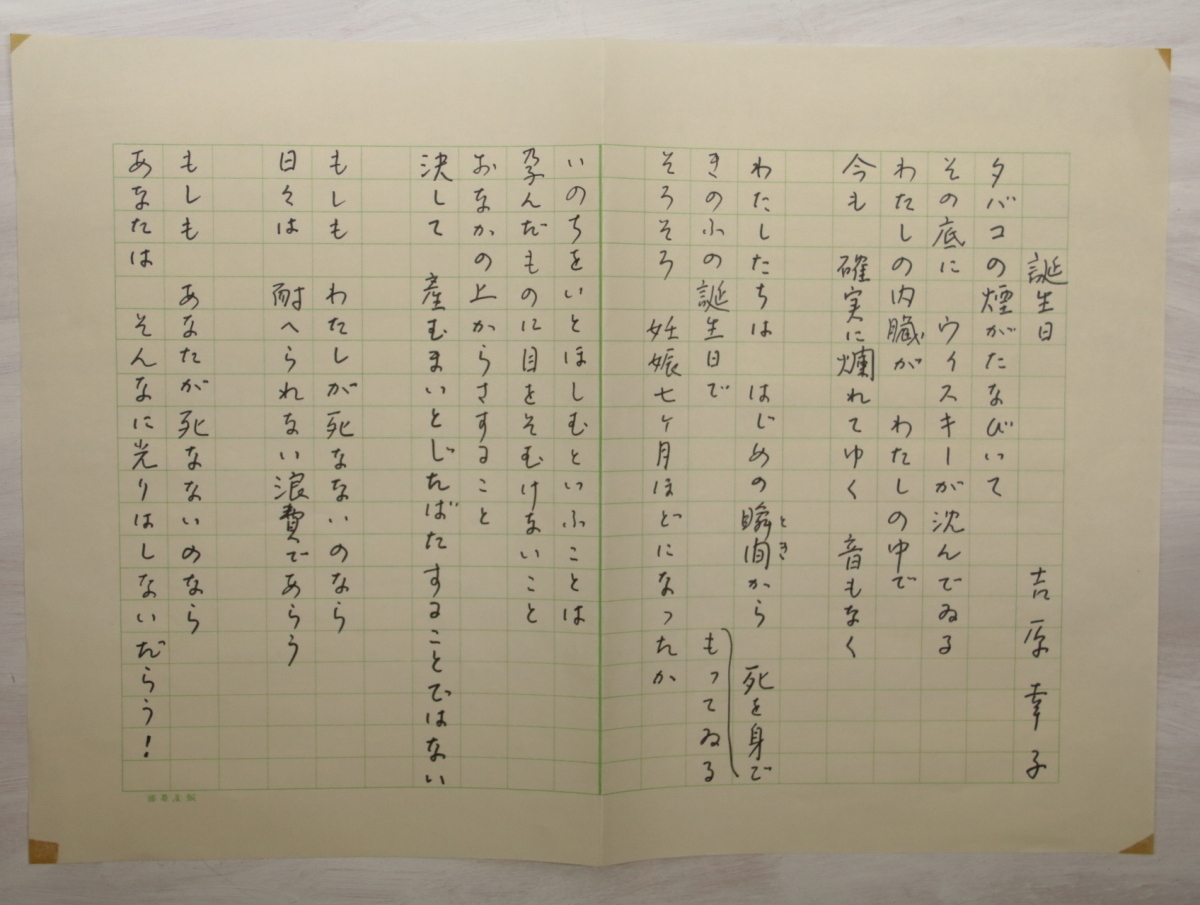 誕生日　吉原幸子
タバコの煙がたなびいて
その底に　ウイスキーが沈んでゐる
わたしの内臓が　わたしの中で
今も　確実に爛れてゆく　音もなく
わたしたちは　はじめの瞬間から　死を身ご
とき
もってゐる
きのふの誕生日で
そろそろ　妊娠七ヶ月ほどになったか
いのちをいとほしむといふことは
孕んだものに目をそむけないこと
おなかの上からさすること
決して　産むまいとじたばたすることではない
もしも　わたしが死なないのなら
日々は　耐へられない浪費であらう
もしも　あなたが死なないのなら
あなたは　そんなに光りはしないだらう！